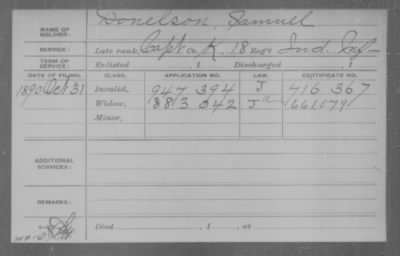 NAME OF SOLDIER: Donelson, Samuel
SERVICE: Late rank, Capt Co. K, 18 Reg't Ind. Inf-
TERM OF SERVICE: Enlisted , 1 Discharged , 1
DATE OF FILING. CLASS. APPLICATION NO. LAW. CERTIFICATE NO.
1890 Oct 31 Invalid, 947 394 J 716 367
Widow, 883 042 J 661579
Minor,
ADDITIONAL SERVICES:
REMARKS:
Died , 1 , at